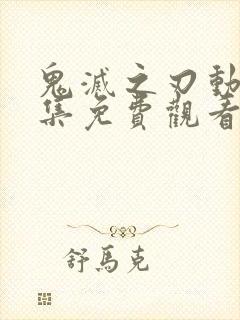 鬼滅之刃動
集免費觀看
舒馬克